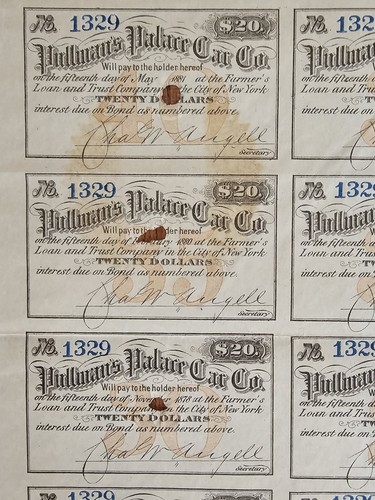 No. 1329 $20.
Pullman's Palace Car Co.
Will pay to the holder hereof
on the fifteenth day of May 1881 at the Farmer's
Loan and Trust Company in the City of New York
TWENTY DOLLARS
interest due on Bond as numbered above.
Chas W Angell
Secretary
No. 1329 $20.
Pullman's Palace Car Co.
Will pay to the holder hereof
on the fifteenth day of 1880 at the Farmer's
Loan and Trust Company in the City of New York
TWENTY DOLLARS
interest due on Bond as numbered above.
Chas W Angell
Secretary
No. 1329 $20.
Pullman's Palace Car Co.
Will pay to the holder hereof
on the fifteenth day of 1878 at the Farmer's
Loan and Trust Company in the City of New York
TWENTY DOLLARS
interest due on Bond as numbered above.
Chas W Angell
Secretary
1329
No. 132
Pullman
on the fifteenth
Loan and Tru
interest due on
No. 132
Pullman
on the fifteenth
Loan and Tru
interest due on
No. 132
Pullman
on the fifteenth
Loan and Tru
interest due on